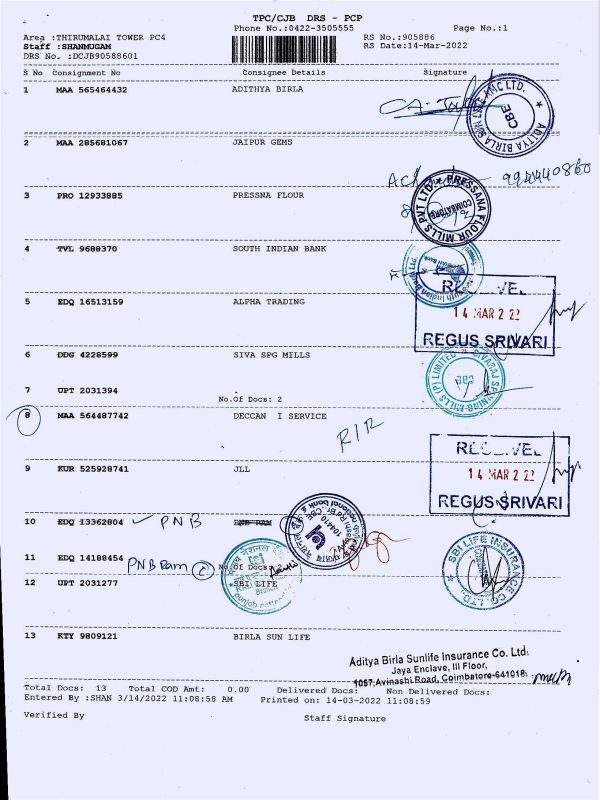 TPC/CJB DRS - PCP
Phone No.:0422-3505555 Page No.:1
Area :THIRUMALAI TOWER PC4 RS No.:905886
Staff :SHANMUGAM RS Date:14-Mar-2022
DRS No. :DCJB90588601
S No Consignment No Consignee Details Signature
1 MAA 565464432 ADITHYA BIRLA
ADITYA BIRLA SUN LIFE AMC LTD. CBE
2 MAA 285681067 JAIPUR GEMS
3 PRO 12933885 PRESSNA FLOUR
PRESSANA FLOUR MILLS PVT LTD COIMBATORE
4 TVL 9688370 SOUTH INDIAN BANK
5 EDQ 16513159 ALPHA TRADING
14 MAR 2 22
REGUS SRIVARI
6 DDG 4228599 SIVA SPG MILLS
SIVARAJ SPINNING MILLS (P) LIMITED
7 UPT 2031394
No.Of Docs: 2
8 MAA 564487742 DECCAN I SERVICE
9 KUR 525928741 JLL
14 MAR 2 22
REGUS SRIVARI
10 EDQ 13362804 PNB
11 EDQ 14188454
PNB Ram 2 No.Of Docs
12 UPT 2031277 SBI LIFE
SBI LIFE INSURANCE CO. LTD.
13 KTY 9809121 BIRLA SUN LIFE
Aditya Birla Sunlife Insurance Co. Ltd.
Jaya Enclave, III Floor,
1057,Avinashi Road, Coimbatore-641018.
Total Docs: 13 Total COD Amt: 0.00 Delivered Docs: Non Delivered Docs:
Entered By :SHAN 3/14/2022 11:08:58 AM Printed on: 14-03-2022 11:08:59
Verified By Staff Signature